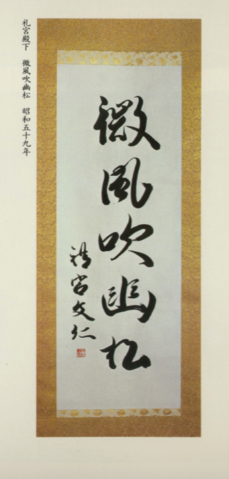 礼宮殿下　微風吹幽松　昭和五十九年
微風吹幽松
禮宮文仁